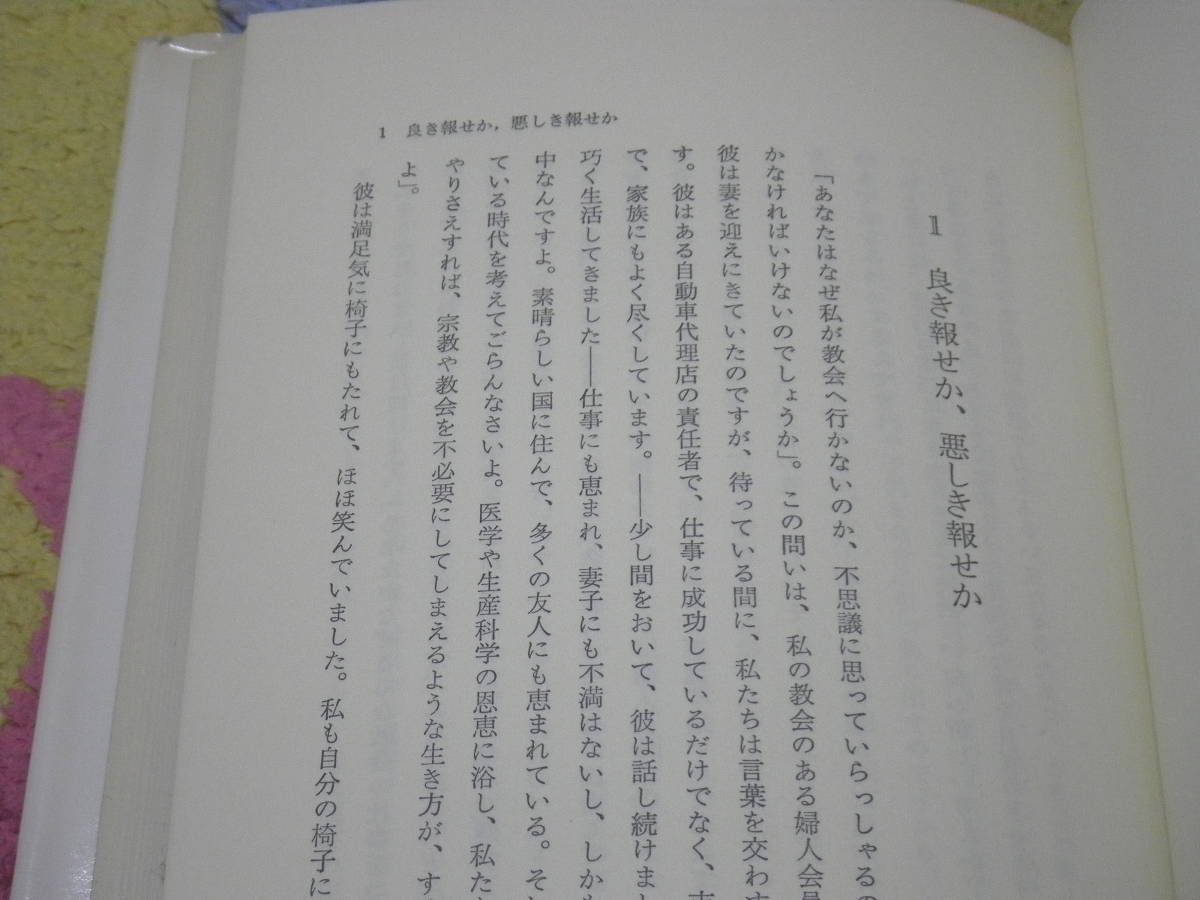 1　良き報せか，悪しき報せか
1　良き報せか、悪しき報せか
「あなたはなぜ私が教会へ行かないのか、不思議に思っていらっしゃるの
かなければいけないのでしょうか」。この問いは、私の教会のある婦人会員
彼は妻を迎えにきていたのですが、待っている間に、私たちは言葉を交わす
す。彼はある自動車代理店の責任者で、仕事に成功しているだけでなく、
で、家族にもよく尽くしています。――少し間をおいて、彼は話し続けまし
巧く生活してきました――仕事にも恵まれ、妻子にも不満はないし、しかも
中なんですよ。素晴らしい国に住んで、多くの友人にも恵まれている。そし
ている時代を考えてごらんなさいよ。医学や生産科学の恩恵に浴し、私た
やりさえすれば、宗教や教会を不必要にしてしまえるような生き方が、す
よ」。
彼は満足気に椅子にもたれて、ほほ笑んでいました。私も自分の椅子に